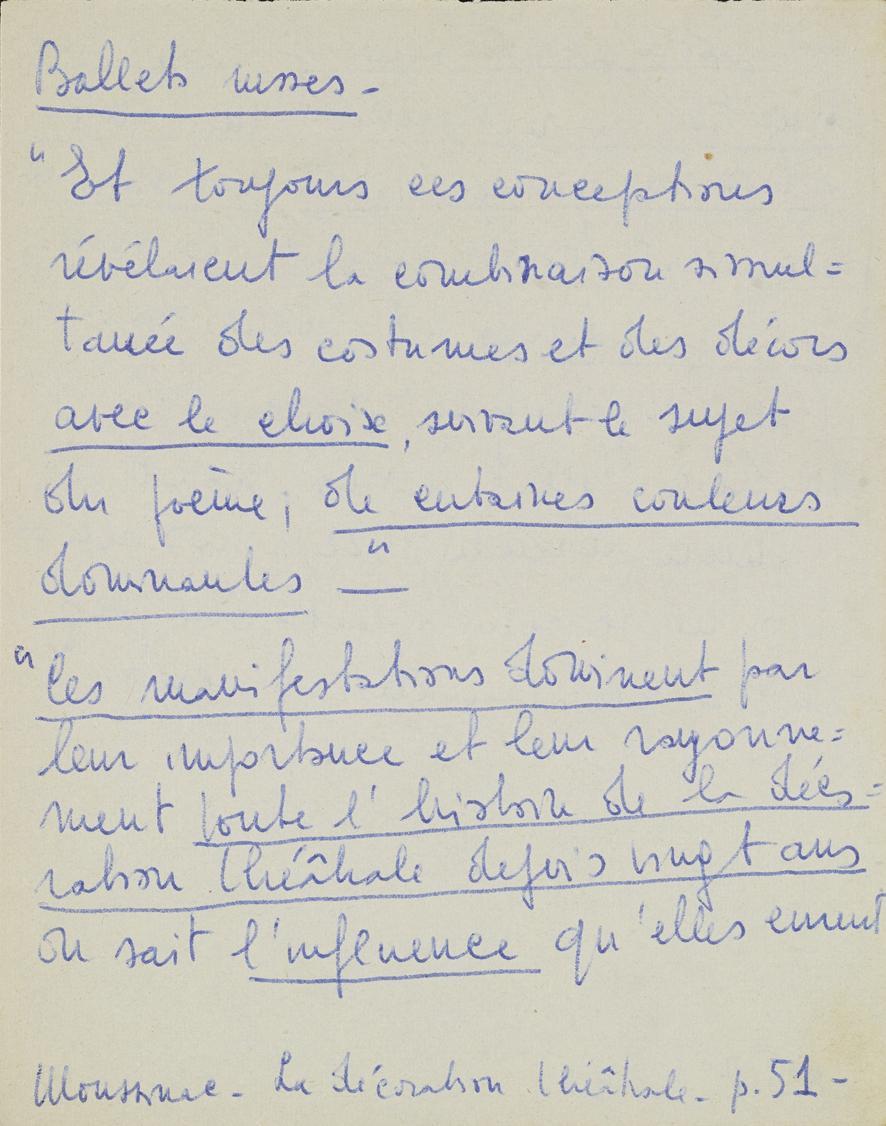 Ballets russes -
"Et toujours ces conceptions
révélaient la combinaison simul=
tanée des costumes et des décors
avec le choix, suivant le sujet
du poème, de certaines couleurs
dominantes — "
"Ces manifestations dominent par
leur importance et leur rayonne=
ment toute l'histoire de la déco=
ration théâtrale depuis vingt ans
on sait l'influence qu'elles eurent
Moussinac - La décoration théâtrale - p. 51 -